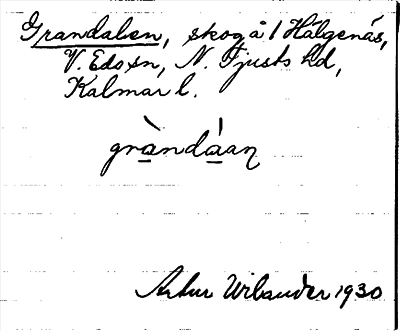 Grandalen, skog å 1 Hälgenäs,
V. Eds sn, N. Tjusts hd,
Kalmar l.
gràndáan
Artur Wilander 1930